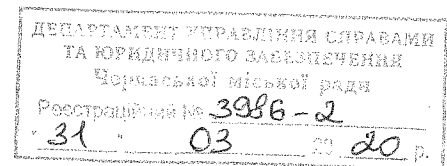 ДЕПАРТАМЕНТ УПРАВЛІННЯ СПРАВАМИ
ТА ЮРИДИЧНОГО ЗАБЕЗПЕЧЕННЯ
Черкаської міської ради
Реєстраційний № 3986-2
"31" 03 20 20 р.